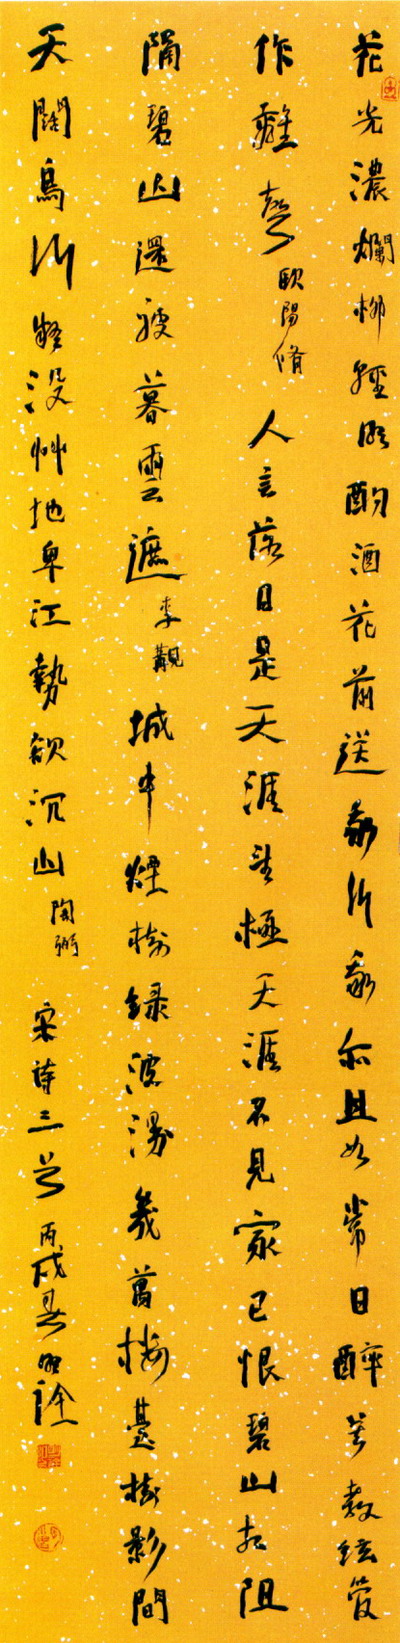 花光濃爛柳輕明酌酒花前送我行我亦且如常日醉莫教絃管
作離聲歐陽脩人言落日是天涯望極天涯不見家已恨碧山相阻
隔碧山還被暮雲遮李覯城中煙樹綠波漫幾萬樓臺樹影間
天闊鳥行疑没艸地卑江勢欲沉山陶弼宋詩三首丙戌春明詮